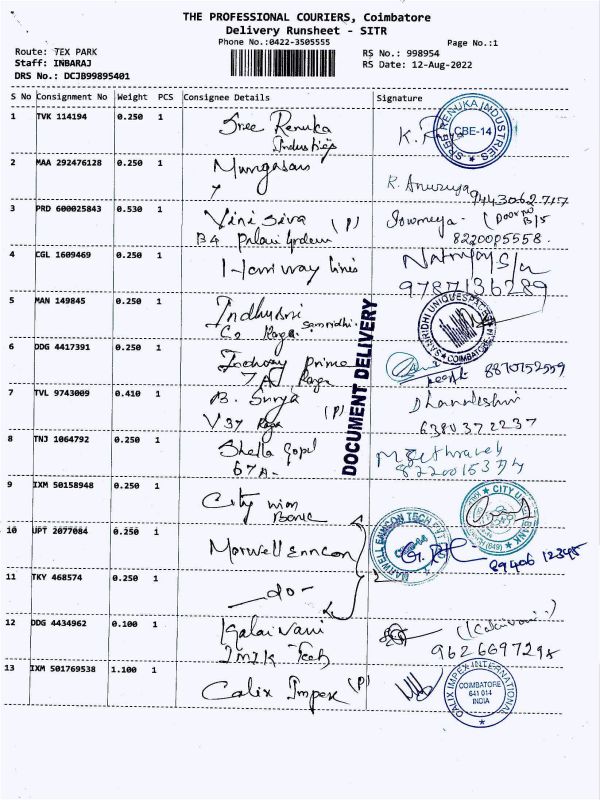 THE PROFESSIONAL COURIERS, Coimbatore
Delivery Runsheet - SITR
Phone No.:0422-3505555
Page No.:1
Route: TEX PARK
RS No.: 998954
Staff: INBARAJ
RS Date: 12-Aug-2022
DRS No.: DCJB99895401
S No Consignment No Weight PCS Consignee Details Signature
1 TVK 114194 0.250 1 Sree Renuka
Industries
SREE RENUKA INDUSTRIES CBE-14
2 MAA 292476128 0.250 1
R. Anusuya
9443062717
3 PRD 600025843 0.530 1 Vini Siva (P)
B4
Sowmeya. (Door no B/5
8220095558.
4 CGL 1609469 0.250 1
9787136289
5 MAN 149845 0.250 1
C2 Raga. Samridhi.
COIMBATORE
DOCUMENT DELIVERY
6 DDG 4417391 0.250 1 Prime
7A, Raga
8870752559
7 TVL 9743009 0.410 1 B. Surya (P)
V 37 Raga
8 TNJ 1064792 0.250 1 Sheila Gopal
67A.
9 IXM 50158948 0.250 1 City Union
Bank
CITY UNION BANK
10 UPT 2077084 0.250 1 Maxwell Enncon
MAXWELL ENNCON TECH
89406 12345
11 TKY 468574 0.250 1 - do -
2
12 DDG 4434962 0.100 1 Kalaivani
Tech
(Kalaivani.)
9626697298
13 IXM 501769538 1.100 1 Calix Impex (P)
CALIX IMPEX INTERNATIONAL
COIMBATORE
641 014
INDIA